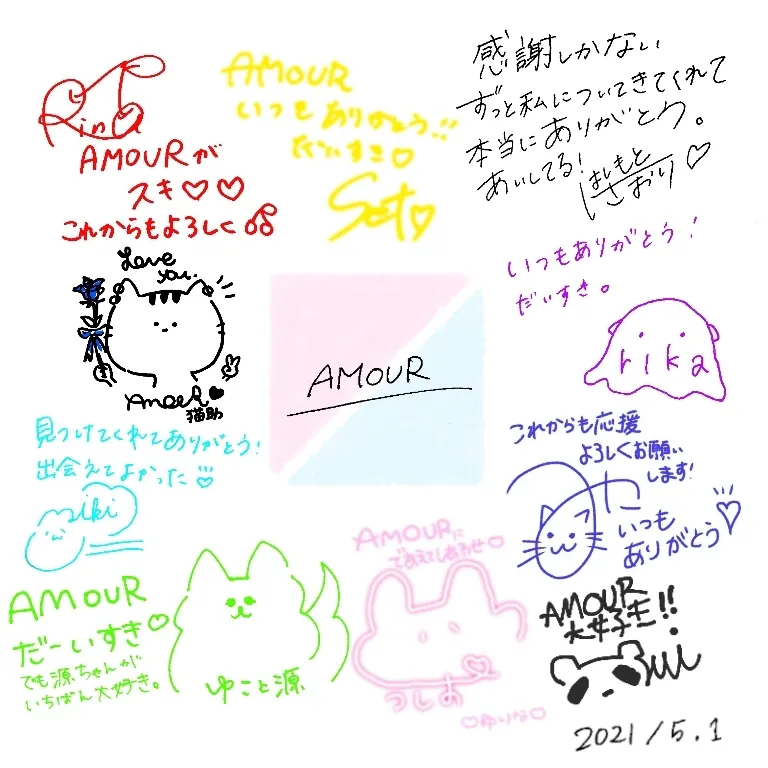 Rina
AMOURが
スキ♡♡
これからもよろしく
AMOUR
いつもありがとう!!
だいすき♡
感謝しかない
ずっと私についてきてくれて
本当にありがとう。
あいしてる!
はしもと
さおり♡
Love
you.
猫助
いつもありがとう!
だいすき。
rika
AMOUR
見つけてくれてありがとう!
出会えてよかった♡
Miki
これからも応援
よろしくお願い
します!
いつも
ありがとう♡
AMOUR
だーいすき♡
でも源ちゃんが
いちばん大好き。
ゆこと源
AMOURに
であえてしあわせ♡
つしお
♡ゆりな♡
AMOUR
大好き!!
2021/5.1